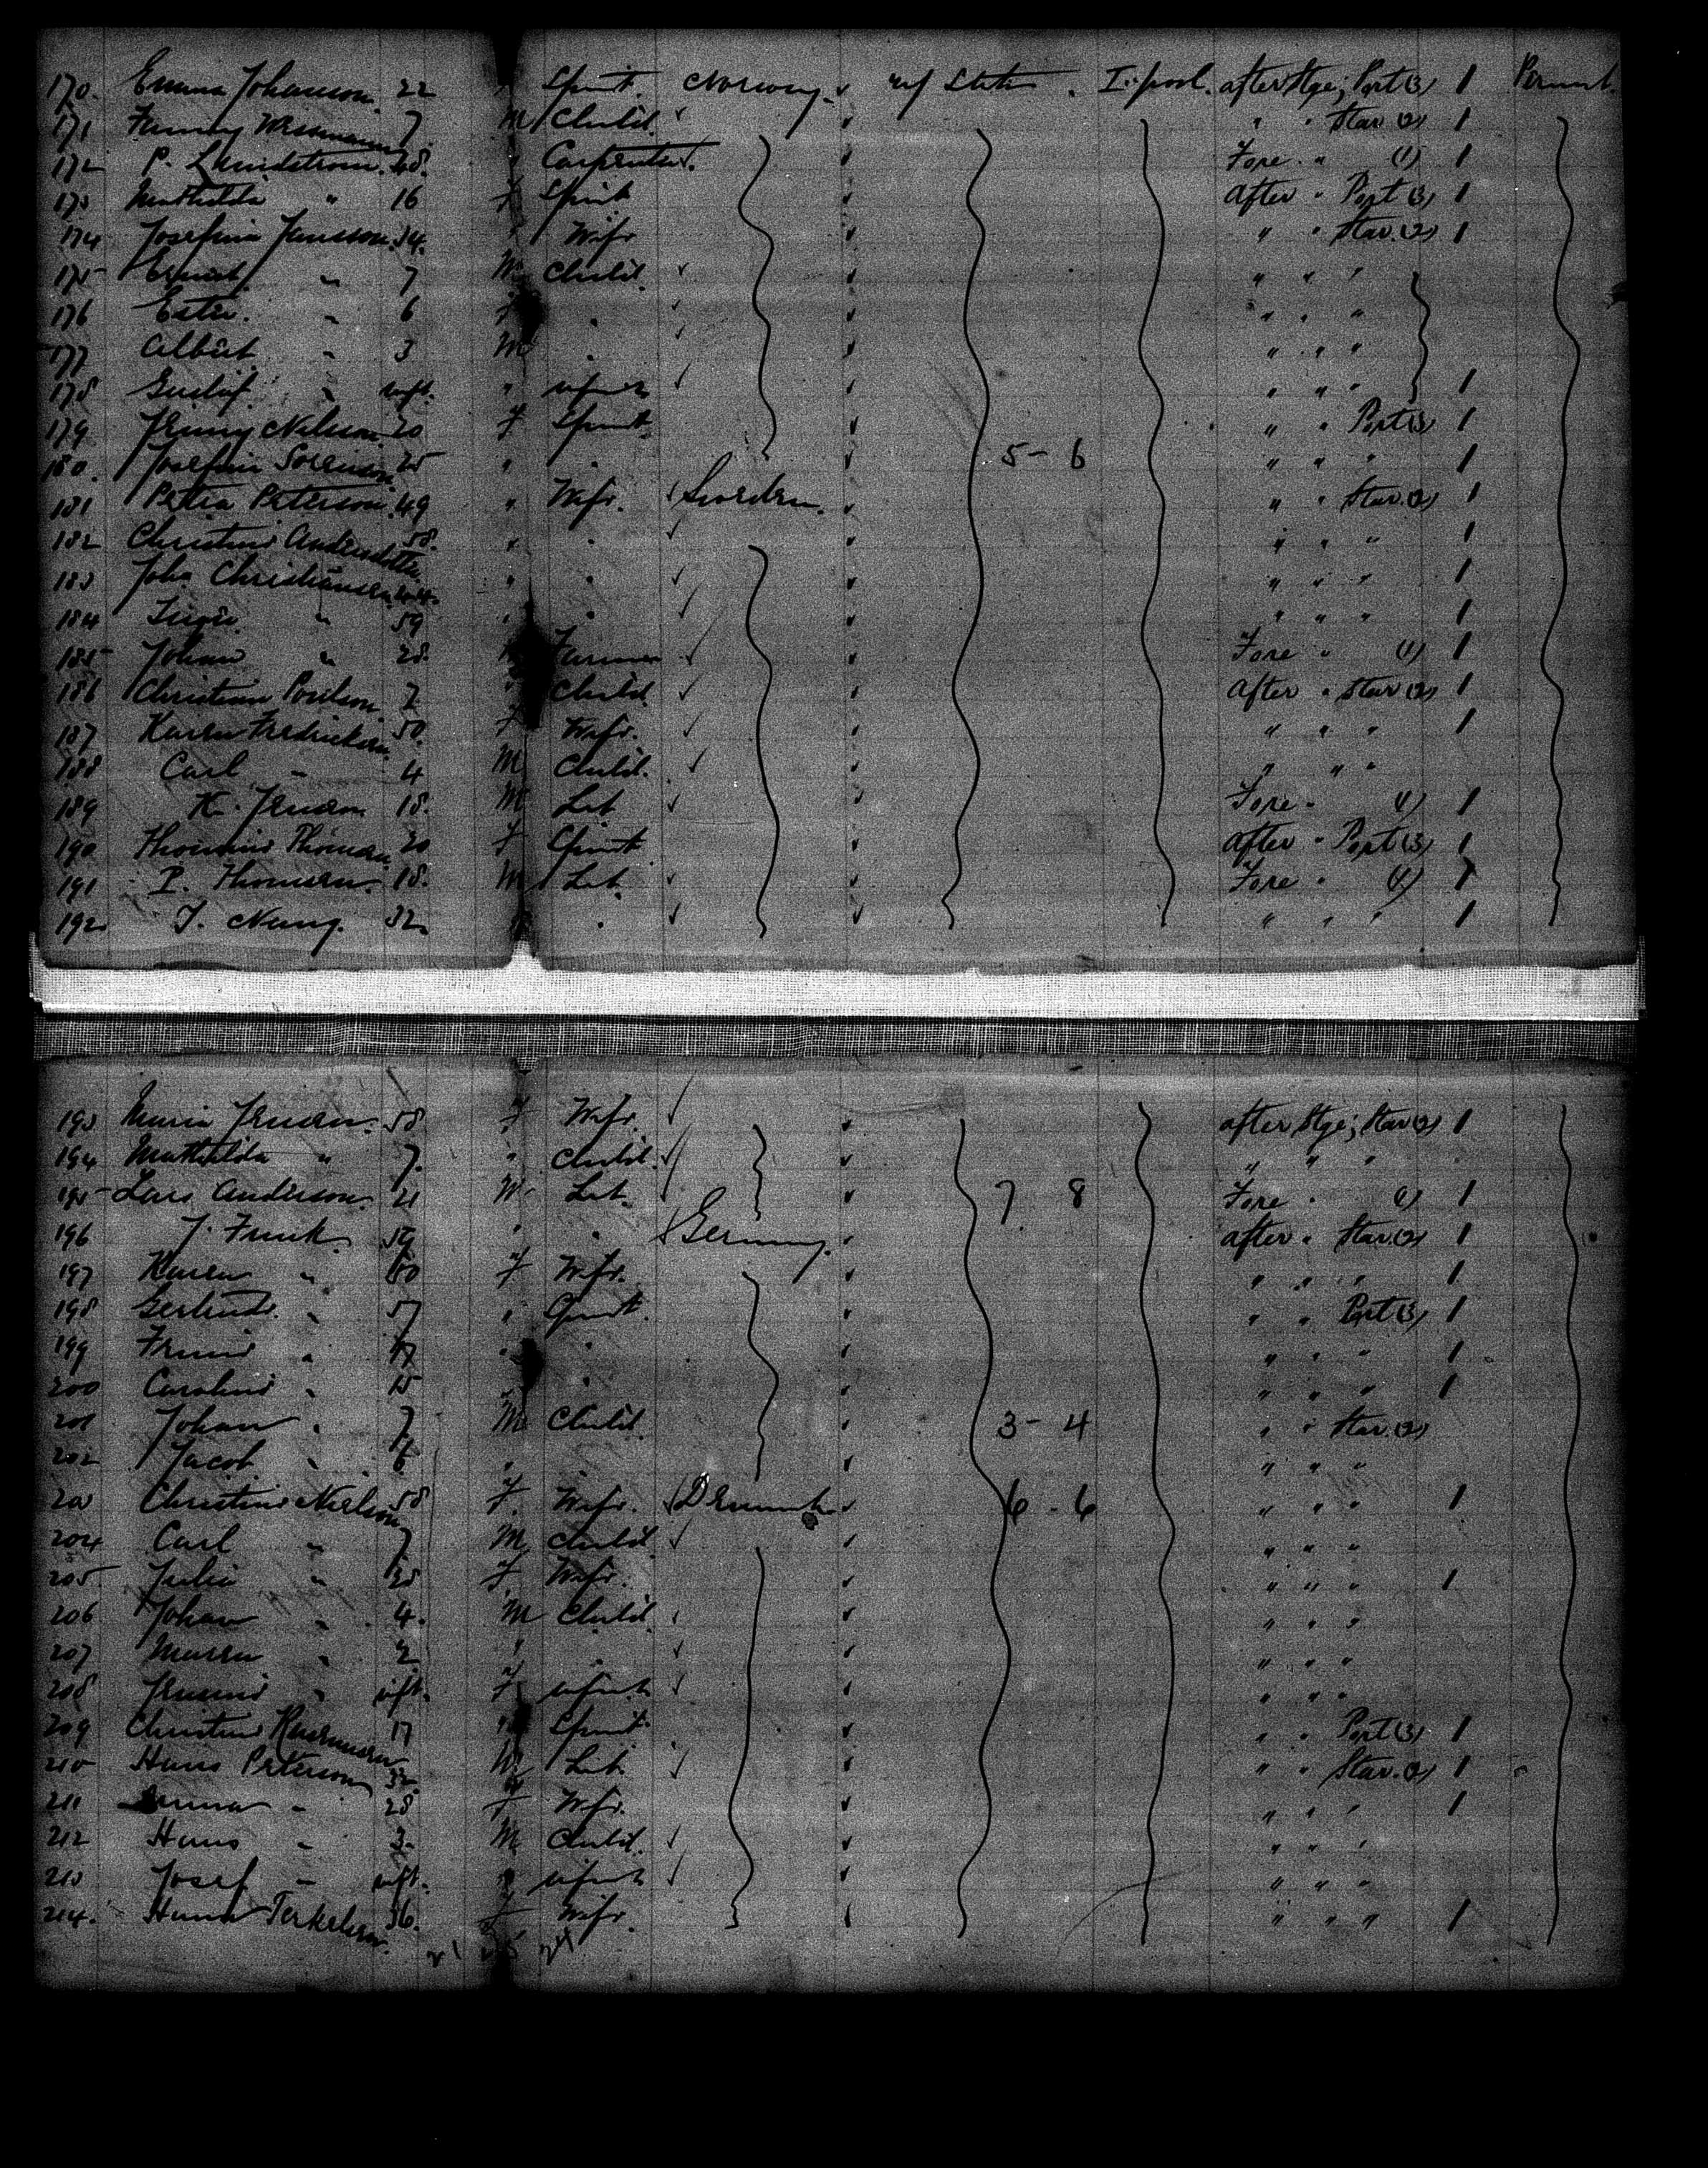 170. Emma Johansson 22 " Spinst. Norway. ✓ U States. L:pool. after Stge; Port (3) 1 Perm't.
171 7 M Child. ✓ ✓ " " Star (2) 1
172 P. Lundstrom. 48. " Carpenter. ✓ Fore " (1) 1
173 Mathilda " 16 F Spinst ✓ After " Port (3) 1
174 Josefina Jansson 34. " Wife ✓ " " Star. (2) 1
175 Ernest " 7 M Child. ✓ ✓ " " "
176 Ester. " 6 F " ✓ ✓ " " "
177 Albert " 3 M " ✓ ✓ " " "
178 Gustaf. " inft. " infant ✓ ✓ " " " 1
179 Jenny Nelson 20 F Spinst. ✓ " " Port (3) 1
180. Josefin Sorenson 25 " " ✓ 5 - 6 " " " 1
181 Petra Peterson. 49 " Wife. ✓ Sweden. ✓ " " Star. (2) 1
182 Christine Andersdotter 58. " " ✓ ✓ " " " 1
183 Joha Christiansen " " ✓ ✓ " " " 1
184 " 59 " " ✓ ✓ " " " 1
185 Johan " 28. M Farmer ✓ ✓ Fore " (1) 1
186 Christian Poulson 7 " Child. ✓ ✓ After " Star (2) 1
187 Karen Fredricksen 50. F Wife. ✓ ✓ " " " 1
188 Carl " 4 M Child. ✓ ✓ " " "
189 K. Jensen 18. M Lab ✓ ✓ Fore " (1) 1
190 Thomine Thomsen 20 F Spinst ✓ After " Port (3) 1
191 P. Thomsen. 18. M Lab. ✓ ✓ Fore " (1) 1
192 J. 32. " " ✓ ✓ " " " 1
193 Maria Jensen. 58 F Wife. ✓ ✓ after Stge; Star (2) 1
194 Mathilda " 7. " Child. ✓ ✓ " " "
195 Lars Anderson 21 M Lab. ✓ ✓ 7 8 Fore " (1) 1
196 J. Funk. 59 " " ✓ Germany. ✓ after " Star. (2) 1
197 Karen " 50 F Wife. ✓ " " " 1
198 Gertrude. " " Spinst. ✓ " " Port (3) 1
199 " " " ✓ " " " 1
200 Caroline " 15 " " ✓ " " " 1
201 Johan " 7 M Child. ✓ 3 - 4 " " Star. (2)
202 Jacob " 6 " " ✓ " " "
203 Christine Nielson 58 F. Wife. ✓ Denmark ✓ 6 - 6 " " " 1
204 Carl " 7 M Child. ✓ " " "
205. Julie " 25 F Wife. ✓ " " " 1
206 Johan " 4. M Child. ✓ ✓ " " "
207 " 2 " " ✓ ✓ " " "
208 " inft. F infant ✓ ✓ " " "
209 Christine Rasmussen 17 " Spinst. ✓ " " Port (3) 1
210 Hans Peterson 32. M. Lab. ✓ ✓ " " Star. (2) 1
211 " 28 F Wife. ✓ " " " 1
212 Hans " 3. M Child. ✓ ✓ " " "
213 Josef " inft. " infant ✓ ✓ " " "
214. Hanna Terkelsen. 36. F Wife. ✓ " " " 1